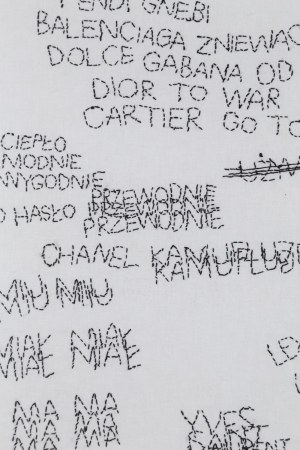 FENDI GNĘBI
BALENCIAGA ZNIEWAC
DOLCE GABANA OD
DIOR TO WAR
CARTIER GO TO
CIEPŁO
MODNIE
WYGODNIE
PRZEWODNIE
O HASŁO PRZEWODNIE
CHANEL KAMUFLUJ
KAMUFLUJ
MIU MIU
MIAŁ MIAŁ
MIAŁ MIAŁ
MA MA
MA MA
MA MA
YVES
SAURENT